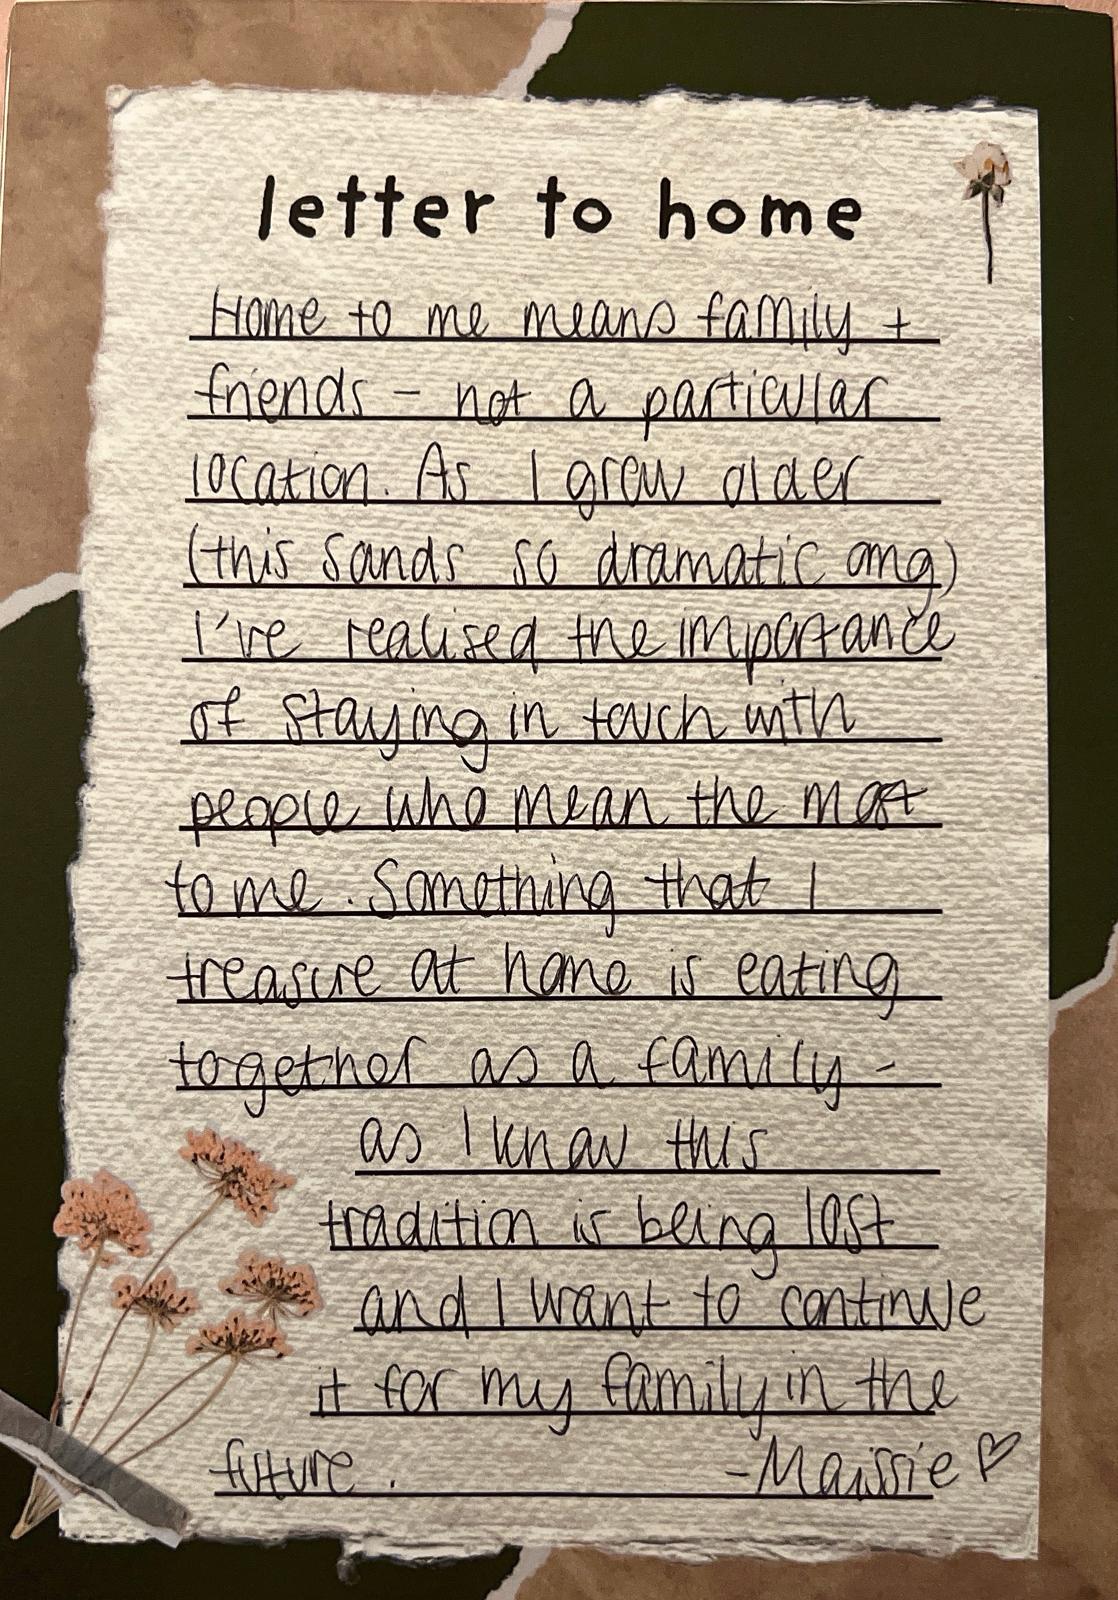 letter to home
Home to me means family +
friends - not a particular
location. As I grew older
(this sands so dramatic omg)
I've realised the importance
of staying in touch with
people who mean the most
to me. Something that I
treasure at home is eating
together as a family -
as I know this
tradition is being lost
and I want to continue
it for my family in the
future. -Maissie ♡